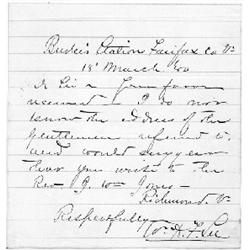 Burke's Station Fairfax Co Va
18' March
Dr Sir
Your favor
received – I do not
know the address of the
gentleman referred to
and would suggest
that you write to the
Rev J. Wm Jones –
Richmond, Va
Respectfully
Wm. H. F. Lee